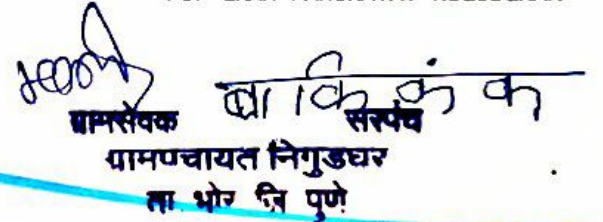 बा कि कं क
ग्रामसेवक सरपंच
ग्रामपंचायत निगुडघर
ता भोर जि पुणे